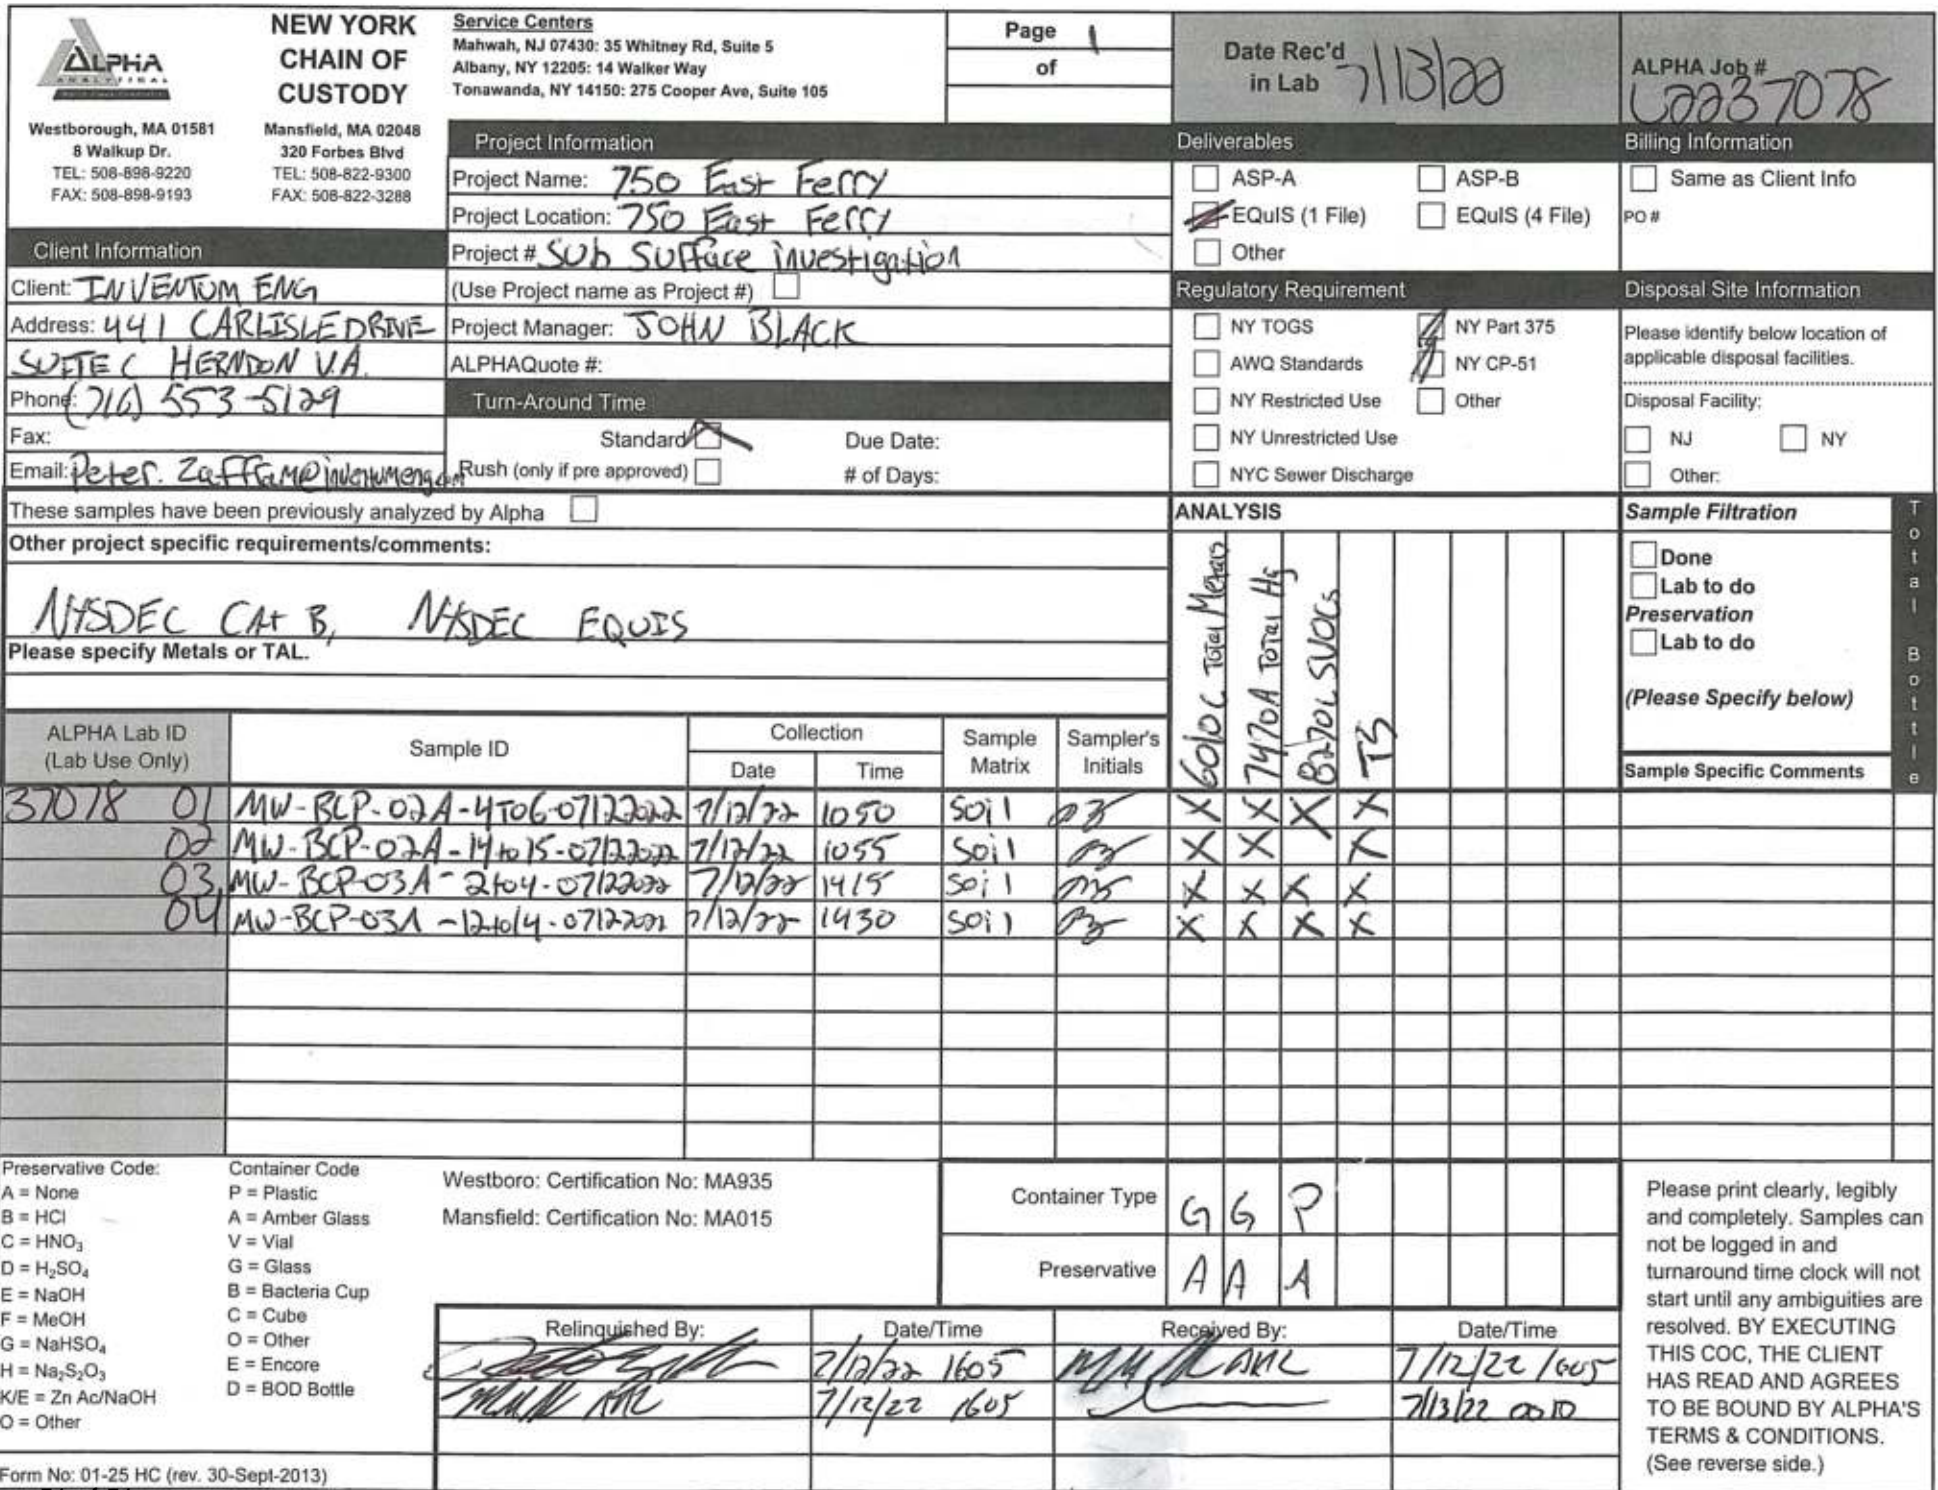 ALPHA
ANALYTICAL
NEW YORK
CHAIN OF
CUSTODY
Westborough, MA 01581
8 Walkup Dr.
TEL: 508-898-9220
FAX: 508-898-9193
Mansfield, MA 02048
320 Forbes Blvd
TEL: 508-822-9300
FAX: 508-822-3288
Service Centers
Mahwah, NJ 07430: 35 Whitney Rd, Suite 5
Albany, NY 12205: 14 Walker Way
Tonawanda, NY 14150: 275 Cooper Ave, Suite 105
Page 1
of
Date Rec'd
in Lab 7/13/22
ALPHA Job #
L2237078
Client Information
Client: INVENTUM ENG
Address: 441 CARLISLE DRIVE
SUITE C HERNDON V.A.
Phone: (716) 553-5129
Fax:
Email: Peter.Zaffram@inventumeng.com
Project Information
Project Name: 750 East Ferry
Project Location: 750 East Ferry
Project # Sub Surface investigation
(Use Project name as Project #)
Project Manager: JOHN BLACK
ALPHAQuote #:
Turn-Around Time
Standard Due Date:
Rush (only if pre approved) # of Days:
Deliverables
ASP-A ASP-B
EQuIS (1 File) EQuIS (4 File)
Other
Regulatory Requirement
NY TOGS NY Part 375
AWQ Standards NY CP-51
NY Restricted Use Other
NY Unrestricted Use
NYC Sewer Discharge
Billing Information
Same as Client Info
PO #
Disposal Site Information
Please identify below location of
applicable disposal facilities.
Disposal Facility:
NJ NY
Other:
These samples have been previously analyzed by Alpha
Other project specific requirements/comments:
NYSDEC CAt B, NYSDEC EQUIS
Please specify Metals or TAL.
ANALYSIS
6010C Total Metals
7470A Total Hg
8270L SVOCs
TS
Sample Filtration
Done
Lab to do
Preservation
Lab to do
(Please Specify below)
Total Bottle
ALPHA Lab ID
(Lab Use Only)
Sample ID
Collection
Date Time
Sample
Matrix
Sampler's
Initials
Sample Specific Comments
37078 01 MW-BCP-02A-4TO6-07122022 7/12/22 1050 Soil PZ X X X X
02 MW-BCP-02A-14to15-07122022 7/12/22 1055 Soil PZ X X X
03 MW-BCP-03A-2to4-07122022 7/12/22 1415 Soil PZ X X X X
04 MW-BCP-03A-12to14-07122022 7/12/22 1430 Soil PZ X X X X
Preservative Code:
A = None
B = HCl
C = HNO3
D = H2SO4
E = NaOH
F = MeOH
G = NaHSO4
H = Na2S2O3
K/E = Zn Ac/NaOH
O = Other
Container Code
P = Plastic
A = Amber Glass
V = Vial
G = Glass
B = Bacteria Cup
C = Cube
O = Other
E = Encore
D = BOD Bottle
Westboro: Certification No: MA935
Mansfield: Certification No: MA015
Container Type G G P
Preservative A A A
Relinquished By: Date/Time Received By: Date/Time
7/12/22 1605 7/12/22 1605
7/12/22 1605 7/13/22 0010
Please print clearly, legibly
and completely. Samples can
not be logged in and
turnaround time clock will not
start until any ambiguities are
resolved. BY EXECUTING
THIS COC, THE CLIENT
HAS READ AND AGREES
TO BE BOUND BY ALPHA'S
TERMS & CONDITIONS.
(See reverse side.)
Form No: 01-25 HC (rev. 30-Sept-2013)